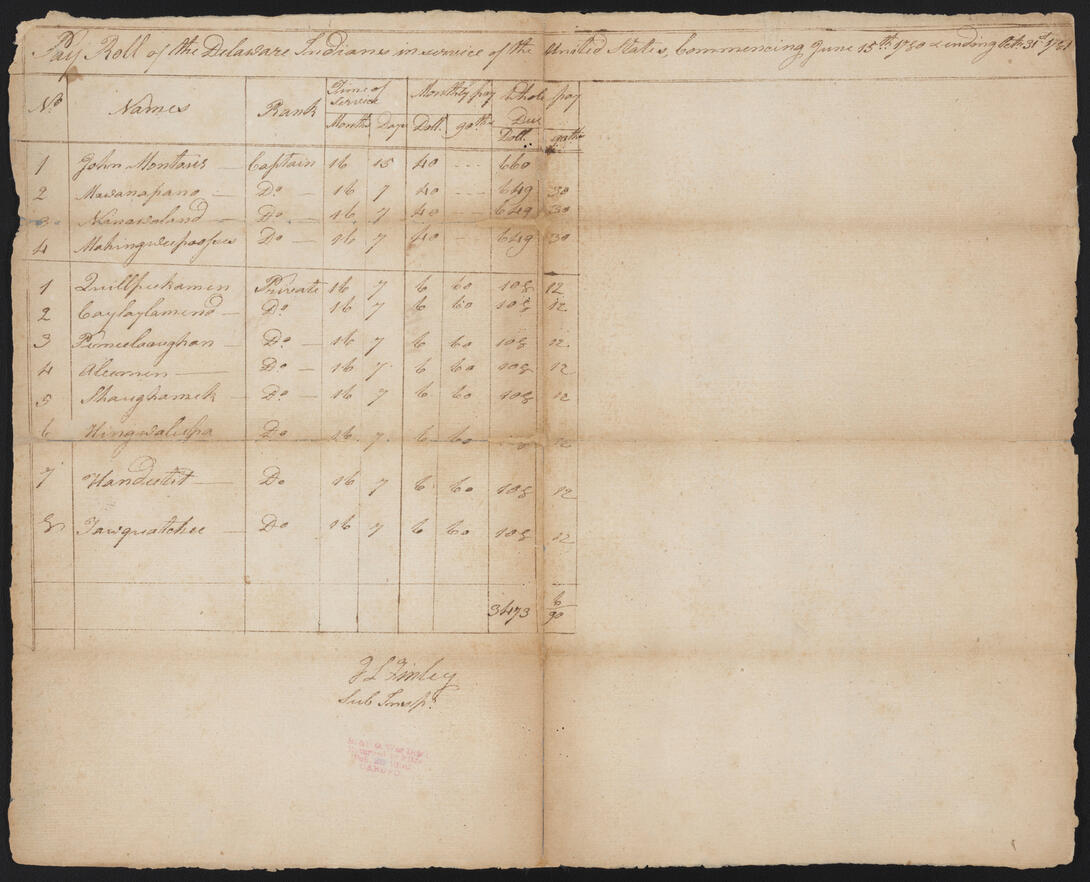 Pay Roll of the Delaware Indians in service of the United States, Commencing June 15th 1780 & ending Octr. 31st 1781
No Names Rank Time of Service Monthly pay Whole pay Due
Months Days Doll. 90ths Doll. 90ths
1 John Montour Captain 16 15 40 --- 660
2 Mawanapano Do 16 7 40 --- 649 30
3 Nanowland Do 16 7 40 -- 649 30
4 Do 16 7 40 -- 649 30
1 Quillpeekamen Private 16 7 6 60 108 12
2 Caylaylamend Do 16 7 6 60 108 12
3 Do 16 7 6 60 108 12
4 Aleemen Do 16 7 6 60 108 12
5 Shaughamek Do 16 7 6 60 108 12
6 Hingwalupa Do 16 7 6 60 12
7 Handeetit Do 16 7 6 60 108 12
8 Tawquatchee Do 16 7 6 60 108 12
3473 6/90
J L Finley
Sub Insp.